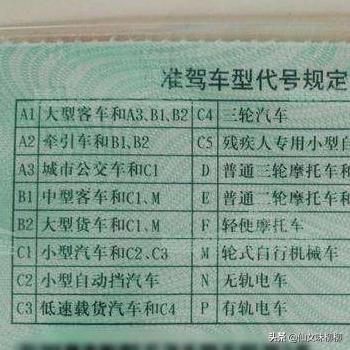 准驾车型代号规定
A1 大型客车和A3、B1、B2 C4 三轮汽车
A2 牵引车和B1、B2 C5 残疾人专用小型自
A3 城市公交车和C1 D 普通三轮摩托车和
B1 中型客车和C1、M E 普通二轮摩托车和
B2 大型货车和C1、M F 轻便摩托车
C1 小型汽车和C2、C3 M 轮式自行机械车
C2 小型自动挡汽车 N 无轨电车
C3 低速载货汽车和C4 P 有轨电车
头条 @仙女味柳柳